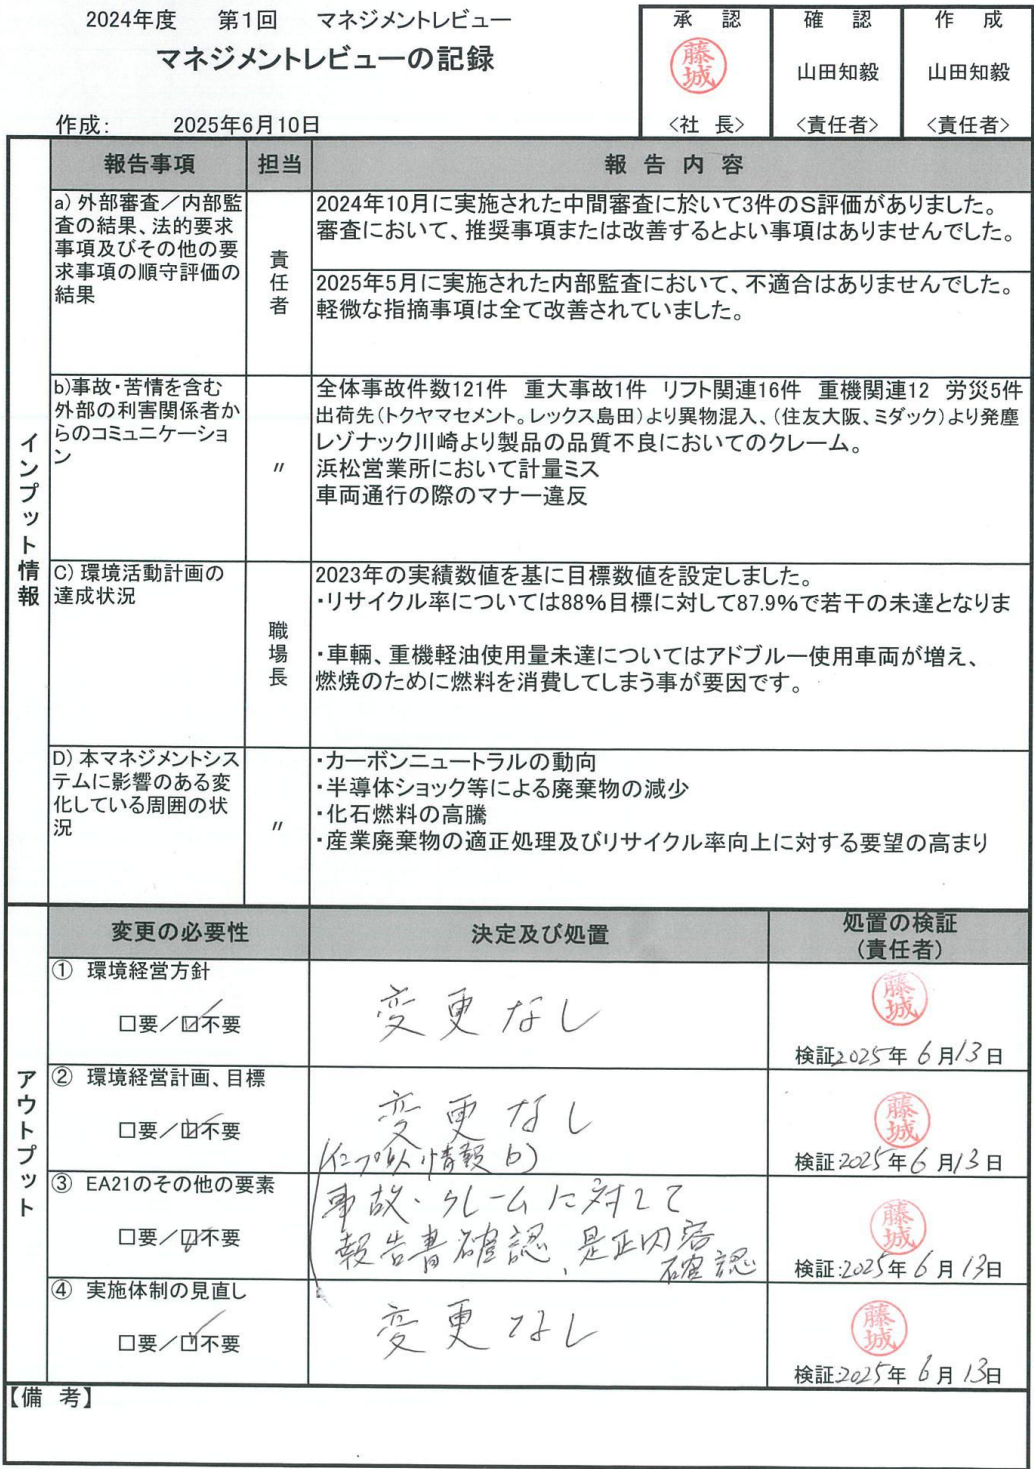 2024年度 第1回 マネジメントレビュー
マネジメントレビューの記録
作成: 2025年6月10日
承 認 確 認 作 成
藤城 山田知毅 山田知毅
<社 長> <責任者> <責任者>
報告事項 担当 報 告 内 容
インプット情報
a) 外部審査／内部監
査の結果、法的要求
事項及びその他の要
求事項の順守評価の
結果
責任者
2024年10月に実施された中間審査に於いて3件のS評価がありました。
審査において、推奨事項または改善するとよい事項はありませんでした。
2025年5月に実施された内部監査において、不適合はありませんでした。
軽微な指摘事項は全て改善されていました。
b)事故・苦情を含む
外部の利害関係者か
らのコミュニケーショ
ン
〃
全体事故件数121件 重大事故1件 リフト関連16件 重機関連12 労災5件
出荷先(トクヤマセメント。レックス島田)より異物混入、(住友大阪、ミダック)より発塵
レゾナック川崎より製品の品質不良においてのクレーム。
浜松営業所において計量ミス
車両通行の際のマナー違反
C) 環境活動計画の
達成状況
職場長
2023年の実績数値を基に目標数値を設定しました。
・リサイクル率については88%目標に対して87.9%で若干の未達となりま
・車輌、重機軽油使用量未達についてはアドブルー使用車両が増え、
燃焼のために燃料を消費してしまう事が要因です。
D) 本マネジメントシス
テムに影響のある変
化している周囲の状
況
〃
・カーボンニュートラルの動向
・半導体ショック等による廃棄物の減少
・化石燃料の高騰
・産業廃棄物の適正処理及びリサイクル率向上に対する要望の高まり
アウトプット
変更の必要性 決定及び処置 処置の検証
(責任者)
① 環境経営方針
□要／☑不要
変更なし
藤城
検証:2025年 6月13日
② 環境経営計画、目標
□要／☑不要
変更なし
藤城
検証:2025年 6月13日
(インプット情報 b)
③ EA21のその他の要素
□要／☑不要
事故・クレームに対して
報告書確認、是正内容
確認
藤城
検証:2025年 6月13日
④ 実施体制の見直し
□要／☑不要
変更なし
藤城
検証:2025年 6月13日
【備 考】